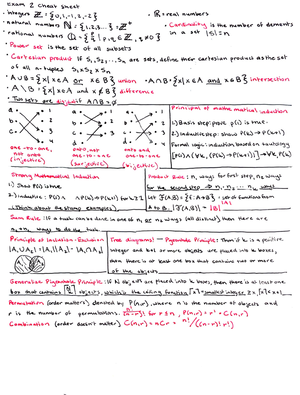 Exam 2 Cheat sheet
• integers Z = {0,1,-1,2,-2}
• R = real numbers
• natural numbers N = {1,2,3...} = Z⁺
• Cardinality is the number of elements in a set |S| = n
• rational numbers Q = { p/q | p,q ∈ Z, q ≠ 0 }
• Power set is the set of all subsets
• Cartesian product If S₁, S₂, ... Sn are sets, define their cartesian product as the set
of all n-tuples S₁ x S₂ x Sn
• A∪B = {x | x ∈ A or x ∈ B} union
• A∩B = {x | x ∈ A and x ∈ B} intersection
• A \ B = {x | x ∈ A and x ∉ B} difference
Two sets are disjoint if A∩B = ∅
a
b
c
1
2
3
4
not onto
one-to-one
(injective)
onto, not
one-to-one
(surjective)
onto and
one-to-one
(bijective)
Principles of mathematical induction
1) Basis step: prove P(1) is true.
2) Inductive step: show P(k) → P(k+1)
Formal logic: induction based on tautology
[P(1) ∧ (∀k, (P(k) → P(k+1))] → ∀k, P(k)
Strong Mathematical Induction
1) Show P(1) is true
2) inductive: P(1) ∧ ... ∧ P(k) → P(k+1) for k ≥ 1
Product Rule: n₁ ways for first step, n₂ ways
for the second step → n₁ · n₂ ways
Let F(A,B) = {f: A→B} = set of functions from
A to B. |F(A,B)| = |B|^|A|
Sum Rule: If a task can be done in one of n₁ or n₂ ways (all distinct) then there are
n₁+n₂ ways to do the task
Principle of Inclusion-Exclusion
|A₁∪A₂| = |A₁|+|A₂| - |A₁∩A₂|
Tree diagrams
Pigeonhole Principle: Then if k is a positive
integer and k+1 or more objects are placed into k boxes,
then there is at least one box that contains two or more
of the objects
Generalize Pigeonhole Principle: If N objects are placed into k boxes, then there is at least one
box that contains ⌈N/k⌉ objects, which is the ceiling function
Permutation (order matters) denoted by P(n,r), where n is the number of objects and
r is the number of permutations. n!/(n-r)! for r ≤ n, P(n,r) = r! · C(n,r)
Combination (order doesn't matter) C(n,r) = nCr = n!/((n-r)! r!)